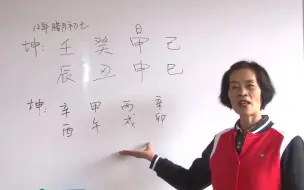 12年腊月初七
坤：壬 癸 甲 己
辰 丑 申 巳
坤：辛 甲 丙 辛
酉 午 戌 卯